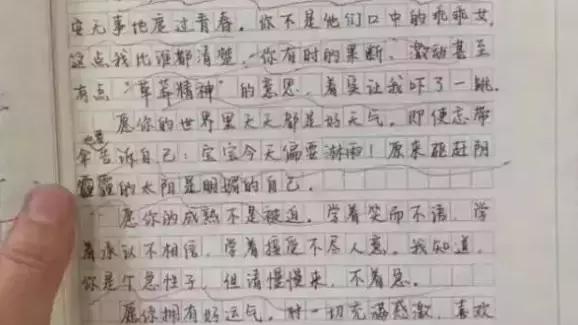 安无事地度过青春。你不是他们口中的乖乖女，
这点我比谁都清楚，你有时的果断、激动甚至
有点“草莽精神”的意思，着实让我吓了一跳。
愿你的世界里天天都是好天气。即使忘带
伞也要告诉自己：宝宝今天偏要淋雨！原来驱赶阴
霾的太阳是明媚的自己。
愿你的成熟不是被迫。学着笑而不语，学
着承认不相信，学着接受不尽人意。我知道，
你是个急性子，但请慢慢来，不着急。
愿你拥有好运气。对一切充满感激，喜欢